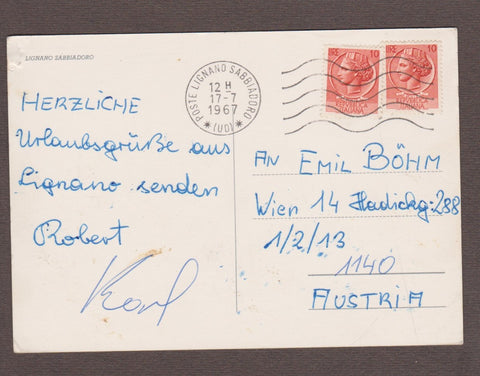 LIGNANO SABBIADORO
POSTE LIGNANO SABBIADORO
12 H
17-7
1967
* (UD) *
10
10
HERZLICHE
Urlaubsgrüße aus
Lignano senden
Robert
Karl
AN EMIL BÖHM
Wien 14 Hadickg. 288
1/2/13
1140
AUSTRIA